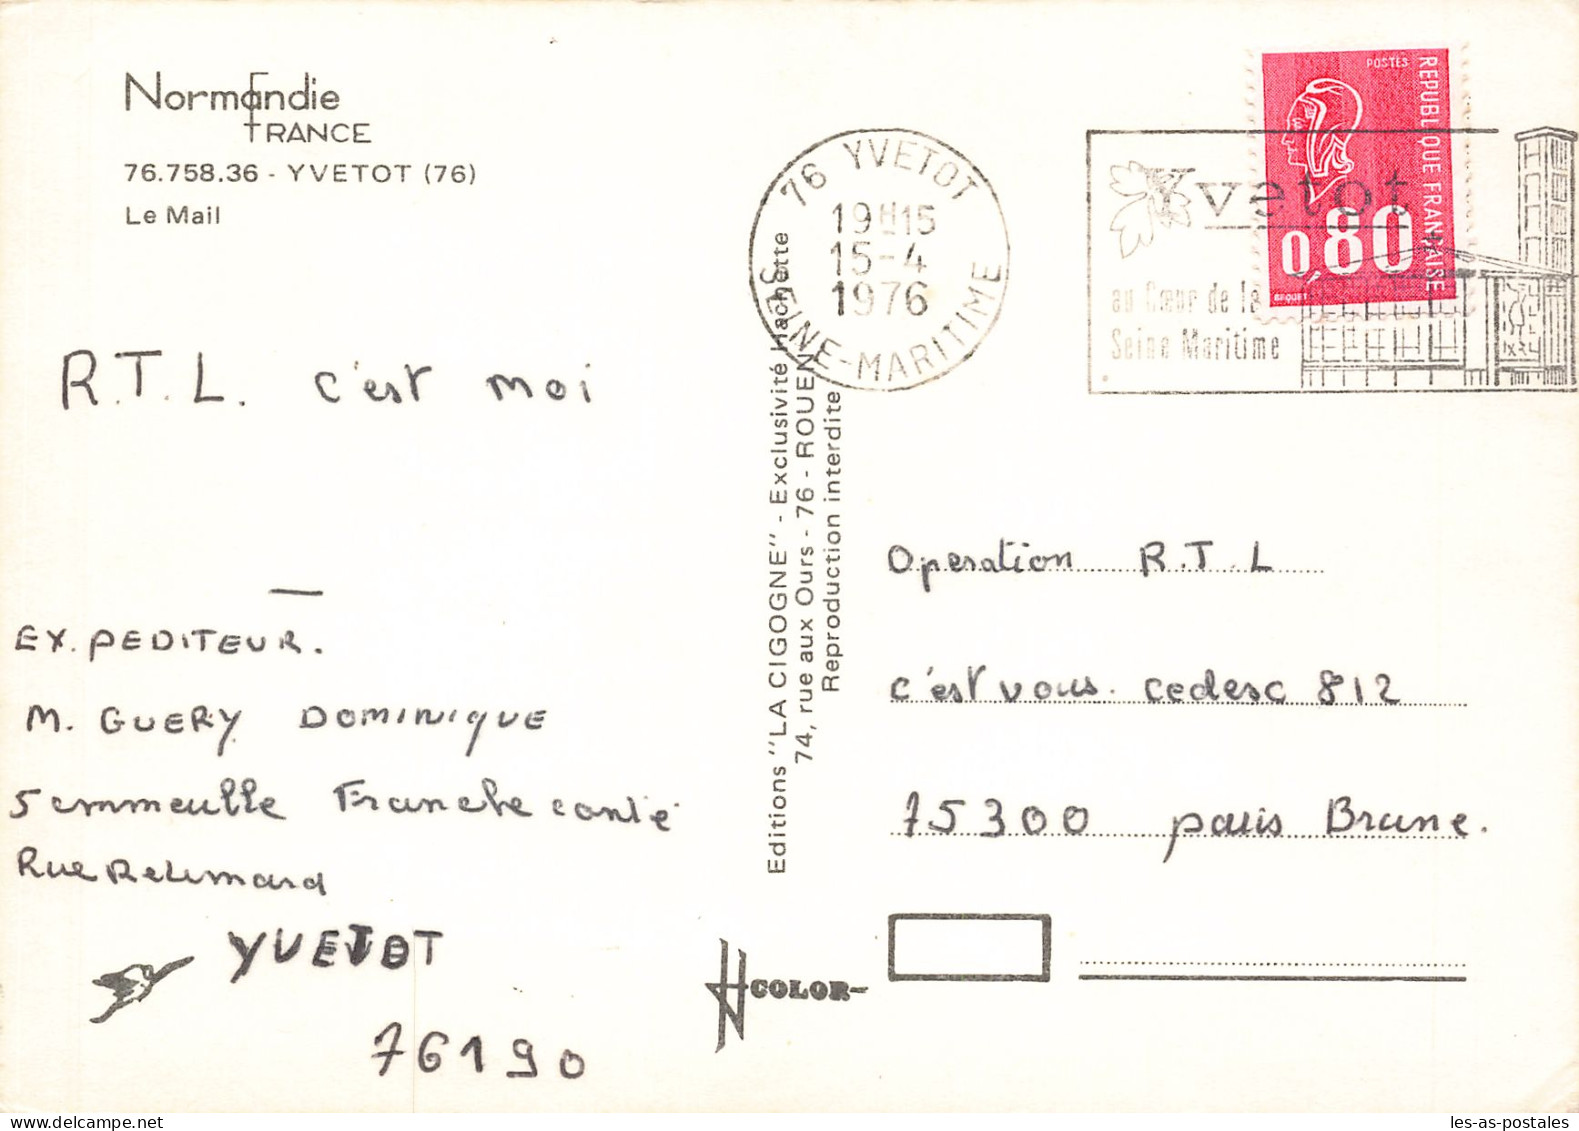 Normandie
FRANCE
76.758.36 - YVETOT (76)
Le Mail
R.T.L. c'est moi
EX.PEDITEUR.
M. GUERY DOMINIQUE
5 immeuble Franche comté
Rue
YVETOT
76190
Editions "LA CIGOGNE" - Exclusivité Hachette
74, rue aux Ours - 76 - ROUEN
Reproduction interdite
COLOR
76 YVETOT
19H15
15-4
1976
SEINE-MARITIME
Yvetot
au Cœur de la
Seine Maritime
POSTES
REPUBLIQUE FRANÇAISE
0,80
BEQUET
Operation R.T.L
c'est vous. cedesc 812
75300 paris Brune.
les-as-postales